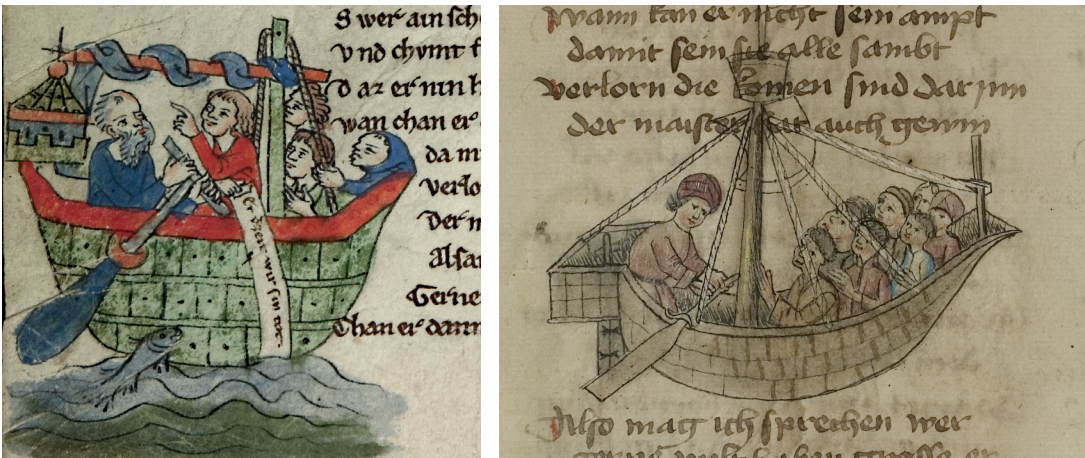 S wer ain sch
v nd chvmt f
d az er nin h
wan chan er
da m
verlo
Der m
Alsa
Gerne
Chan er dann
Er dien wir sin tot
Wann kan er nicht sein ampt
damit sein sie alle sambt
verlorn die komen sind dar jnn
der maister hat auch gewin
Also mag ich sprechen wer